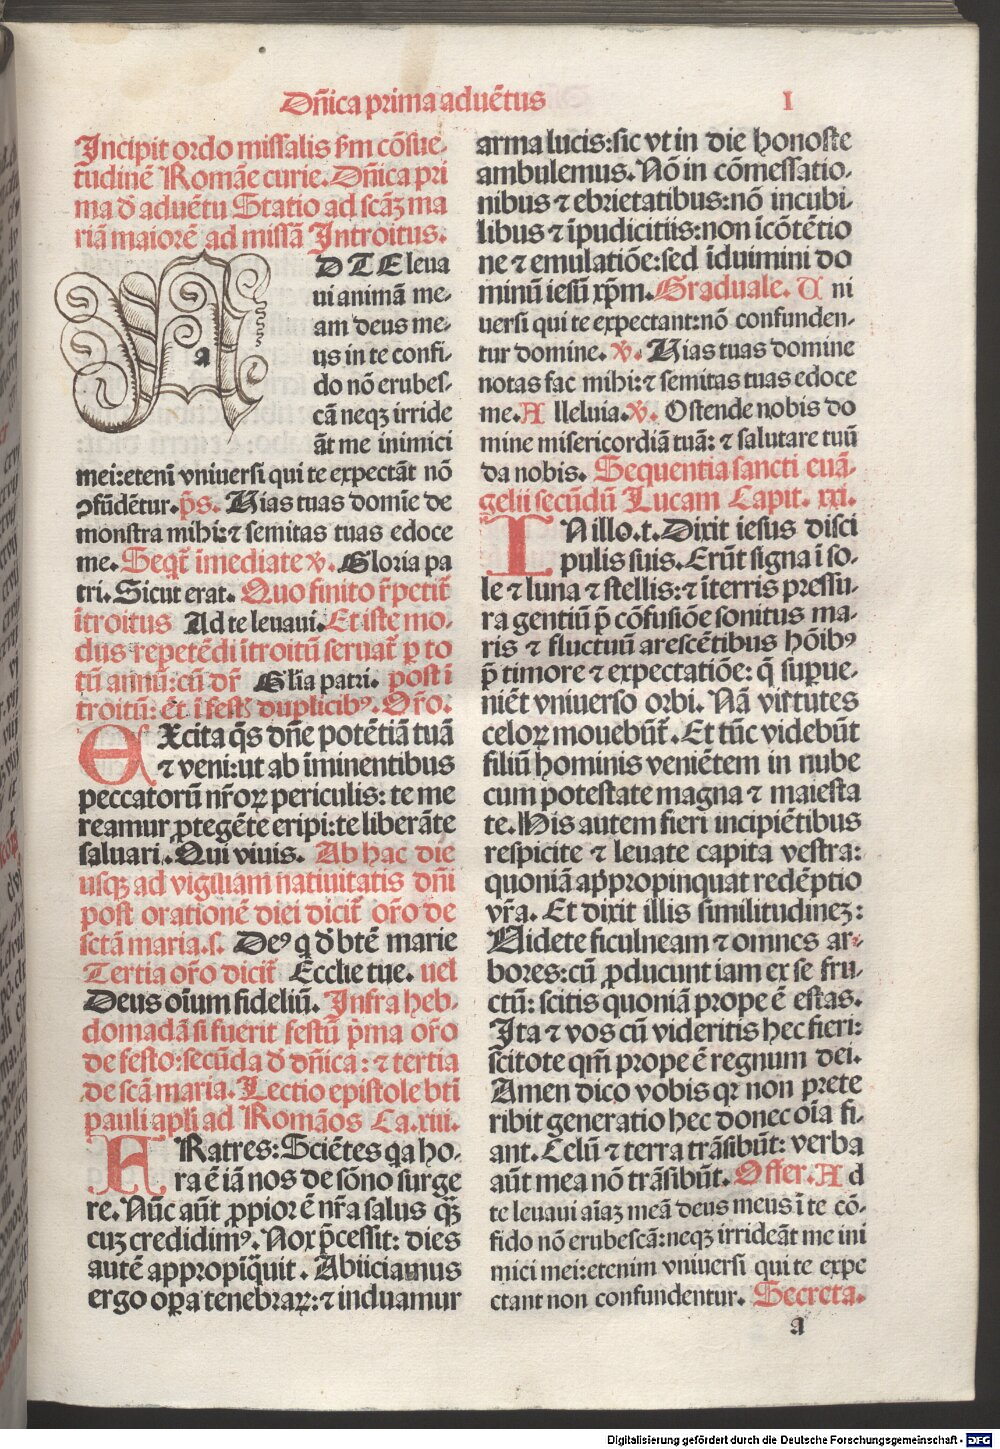 Dñica prima aduẽtus
I
Incipit ordo missalis ẜm cõsue-
tudinẽ Romãe curie. Dñica pri
ma đ aduẽtu Statio ad scãʒ ma
riã maiorẽ ad missã Introitus.
AD TE leua
ui animã me-
am deus me-
us in te confi-
do nõ erubes-
cã neqʒ irride
ãt me inimici
mei:etenĩ vniuersi qui te expectãt nõ
ꝯfũdẽtur.p̃s. Uias tuas domĩe de
monstra mihi:⁊ semitas tuas edoce
me. Seqt̃ ĩmediate v̾. Gloria pa
tri. Sicut erat. Quo finito r̃petit̃
ĩtroitus Ad te leuaui. Et iste mo-
dus repetẽdi ĩtroitũ seruat̃ ꝑ to
tũ annũ:cũ dr̃ Glĩa patri. post ĩ
troitũ: ẽt ĩ festꝭ duplicibꝰ. Oŕo.
EXcita q̃s dñe potẽtiã tuã
⁊ veni:ut ab ĩminentibus
peccatorũ nr̃oꝝ periculis: te me
reamur ꝓtegẽte eripi:te liberãte
saluari. Qui viuis. Ab hac die
usqʒ ad vigiliam natiuitatis dñi
post orationẽ diei dicit̃ oŕo de
sctã maria.s. Deꝰ q đ btẽ marie
Tertia oŕo dicit̃ Ecclie tue. uel
Deus oĩum fideliũ. Infra heb-
domadã si fuerit festũ p̃ma oŕo
de festo:secũda đ dñica: ⁊ tertia
de scã maria. Lectio epistole btĩ
pauli apli ad Romãos Ca.xiii.
FRatres: Sciẽtes qa ho-
ra ẽ iã nos de sõno surge
re. Nũc aũt ꝓpior ẽ nr̃a salus qʒ̃
cuʒ credidimꝰ. Nox p̃cessit: dies
autẽ appropĩquit. Abiiciamus
ergo oꝑa tenebraꝝ:⁊ induamur
arma lucis:sic vt in die honoste
ambulemus. Nõ in cõmessatio-
nibus ⁊ ebrietatibus:nõ incubi-
libus ⁊ ĩpudicitiis:non ĩcõtẽtio
ne ⁊ emulatiõe:sed ĩduimini do
minũ iesũ xp̃m. Graduale. U ni
uersi qui te expectant:nõ confunden-
tur domine. v̾. Uias tuas domine
notas fac mihi:⁊ semitas tuas edoce
me. A lleluia. v̾. Ostende nobis do
mine misericordiã tuã: ⁊ salutare tuũ
da nobis. Sequentia sancti euã-
gelii secũdũ Lucam Capit. xxi.
IN illo.t. Dixit iesus disci
pulis suis. Erũt signa ĩ so-
le ⁊ luna ⁊ stellis: ⁊ ĩterris pressu-
ra gentiũ p̃ cõfusiõe sonitus ma-
ris ⁊ fluctuũ arescẽtibus hõibꝰ
p̃ timore ⁊ expectatiõe: q̃ suꝑue-
niẽt vniuerso orbi. Nã virtutes
celoꝝ mouebũt̃. Et tũc videbũt
filiũ hominis veniẽtem in nube
cum potestate magna ⁊ maiesta
te. His autem fieri incipiẽtibus
respicite ⁊ leuate capita vestra:
quoniã appropinquat redẽptio
vr̃a. Et dixit illis similitudineʒ:
Uidete ficulneam ⁊ omnes ar-
bores:cũ ꝓducunt iam ex se fru-
ctũ: scitis quoniã prope ẽ estas.
Ita ⁊ vos cũ videritis hec fieri:
scitote qm̃ prope ẽ regnum dei.
Amen dico vobis qꝛ non prete
ribit generatio hec donec oĩa fi-
ant. Celũ ⁊ terra trãsibũt: verba
aũt mea nõ trãsibũt. Offer. A d
te leuaui aĩaʒ meã deus meus ĩ te cõ-
fido nõ erubescã:neqʒ irrideãt me ini
mici mei:etenim vniuersi qui te expe
ctant non confundentur. Secreta.
a
Digitalisierung gefördert durch die Deutsche Forschungsgemeinschaft - DFG